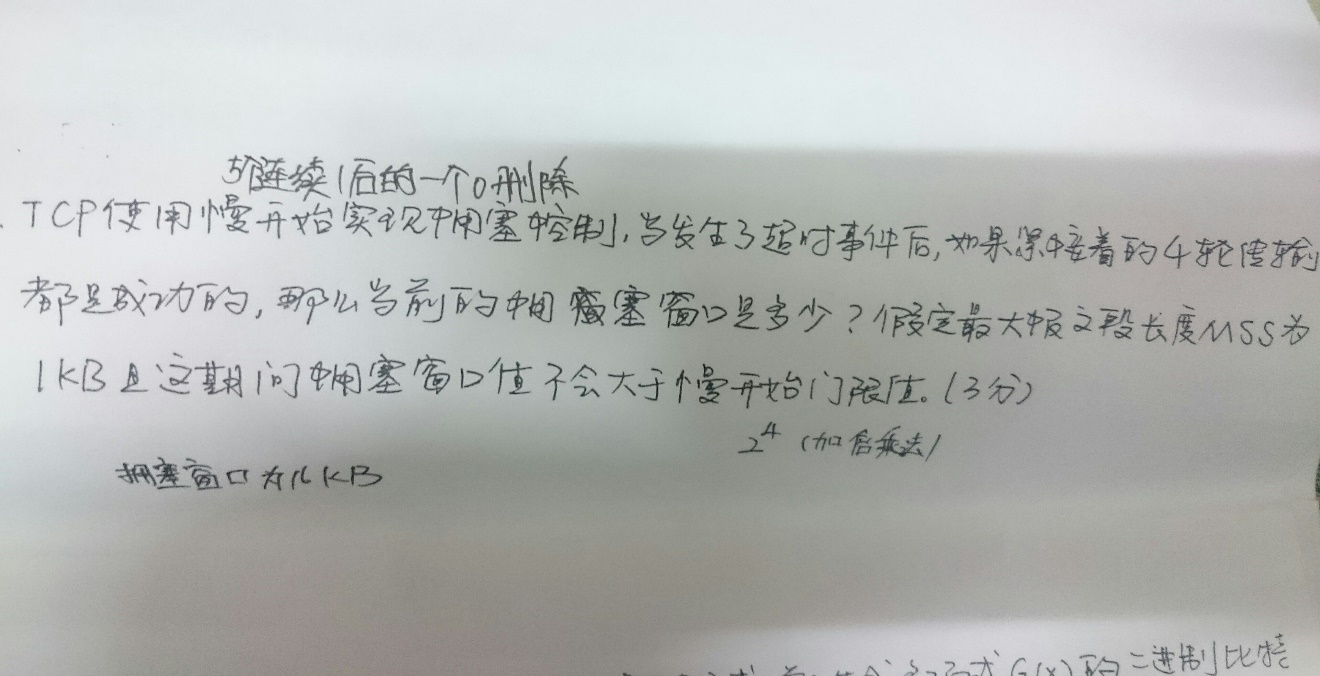 5个连续1后的一个0删除
TCP使用慢开始实现拥塞控制,当发生了超时事件后,如果紧接着的4轮传输
都是成功的,那么当前的拥塞窗口是多少?假定最大报文段长度MSS为
1KB且这期间拥塞窗口值不会大于慢开始门限值。(3分)
2⁴(加倍乘法)
拥塞窗口为16KB
G(x)的二进制比特